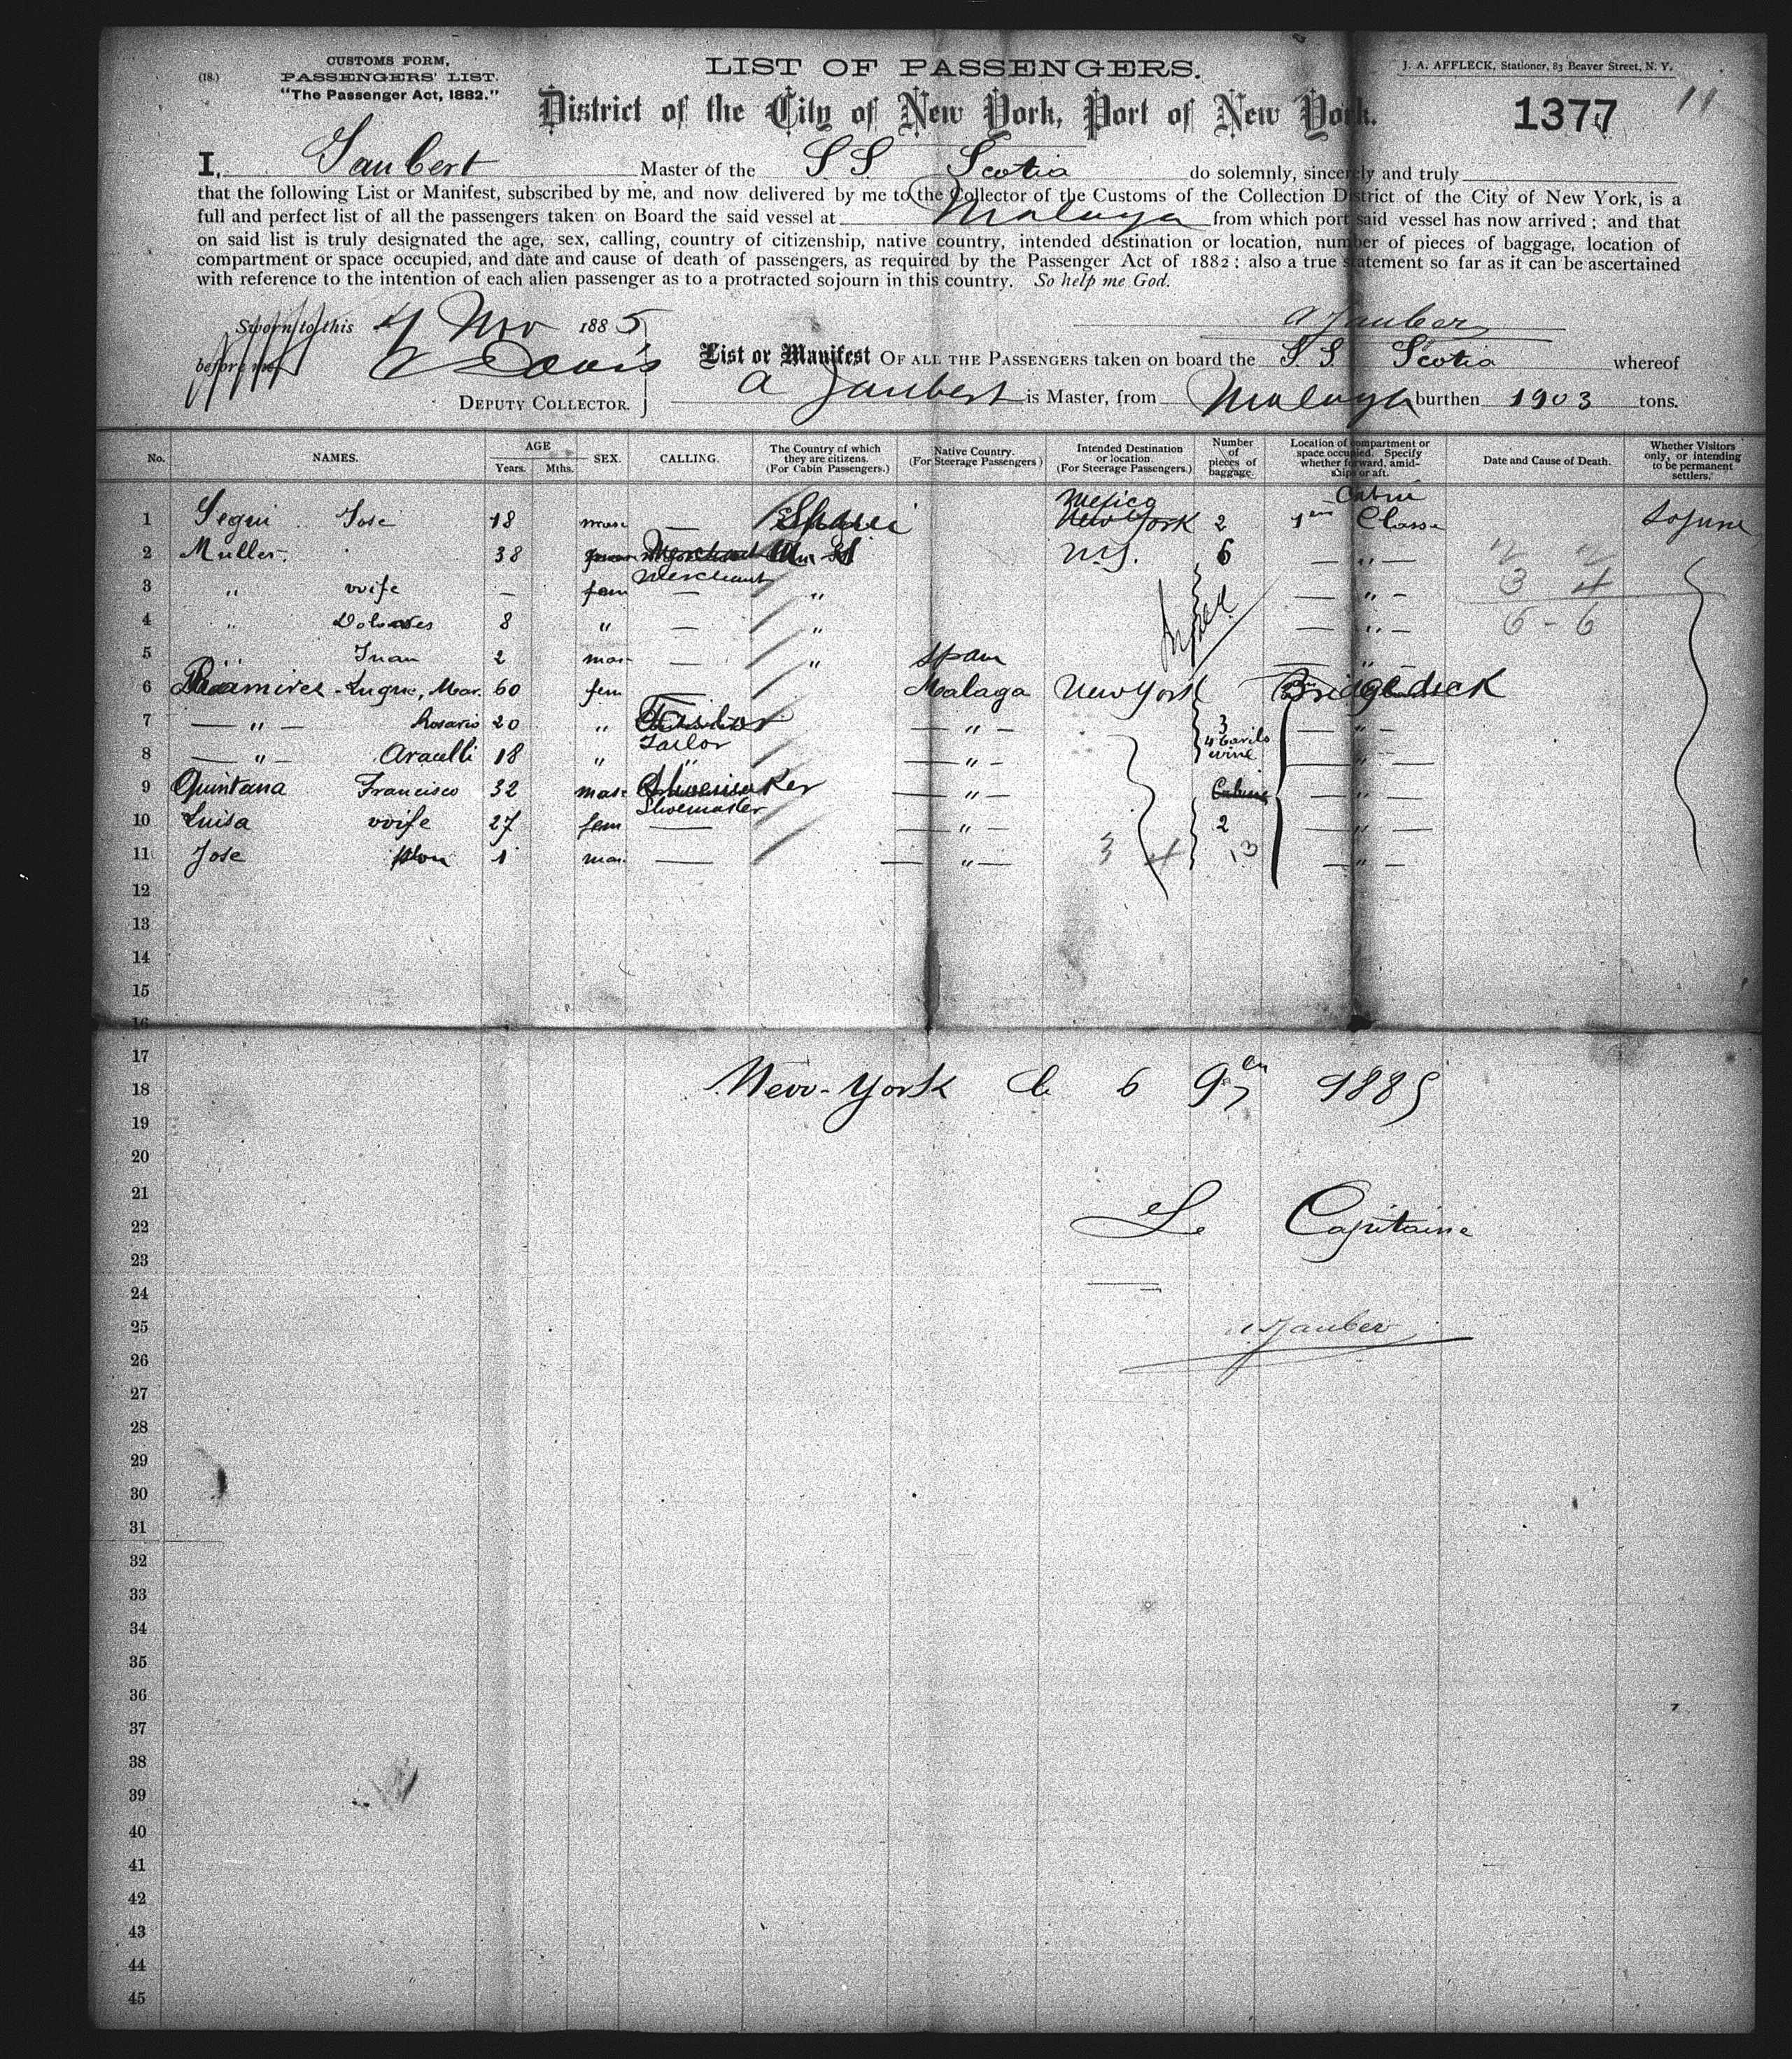 (18.)
CUSTOMS FORM,
PASSENGERS' LIST.
"The Passenger Act, 1882."
LIST OF PASSENGERS.
J. A. AFFLECK, Stationer, 83 Beaver Street, N. Y.
District of the City of New York, Port of New York.
1377
11
I, Jaubert Master of the S.S. Scotia do solemnly, sincerely and truly
that the following List or Manifest, subscribed by me, and now delivered by me to the Collector of the Customs of the Collection District of the City of New York, is a
full and perfect list of all the passengers taken on Board the said vessel at Malaga from which port said vessel has now arrived; and that
on said list is truly designated the age, sex, calling, country of citizenship, native country, intended destination or location, number of pieces of baggage, location of
compartment or space occupied, and date and cause of death of passengers, as required by the Passenger Act of 1882; also a true statement so far as it can be ascertained
with reference to the intention of each alien passenger as to a protracted sojourn in this country. So help me God.
Sworn to this Nov 1885
A Jauber
before me Davis
DEPUTY COLLECTOR.
List or Manifest OF ALL THE PASSENGERS taken on board the S.S. Scotia whereof
A Jaubert is Master, from Malaga burthen 1903 tons.
No. NAMES. AGE Years. Mths. SEX. CALLING. The Country of which they are citizens. (For Cabin Passengers.) Native Country. (For Steerage Passengers) Intended Destination or location. (For Steerage Passengers.) Number of pieces of baggage. Location of compartment or space occupied. Specify whether forward, amid-ships or aft. Date and Cause of Death. Whether Visitors only, or intending to be permanent settlers.
Mexico Cabin
1 Segui Jose 18 mas. — New York 2 1 Classe
2 Muller 38 Merchant 6 — " —
Merchant
3 " wife — fem — " — " —
4 " Dolores 8 " — " — " —
5 " Juan 2 mas. — " Spain "
6 Ramirez - Luque, Mar. 60 fem — Malaga New York Bridge deck
7 — " — Rosario 20 " Tailor — " — 3 — " —
Tailor 4 barils wine
8 — " — Aracelli 18 " " — " — — " —
9 Quintana Francisco 32 mas. Shoemaker — " — Cabine — " —
Shoemaker
10 Luisa wife 27 fem — — " — 2 — " —
11 Jose 1 mas. — — " — 3 4 13 — " —
3 4
6 - 6
12
13
14
15
16
17
18 New-York le 6 9 1885
19
20
21
22 Le Capitaine
23
24
25 A Jauber
26
27
28
29
30
31
32
33
34
35
36
37
38
39
40
41
42
43
44
45